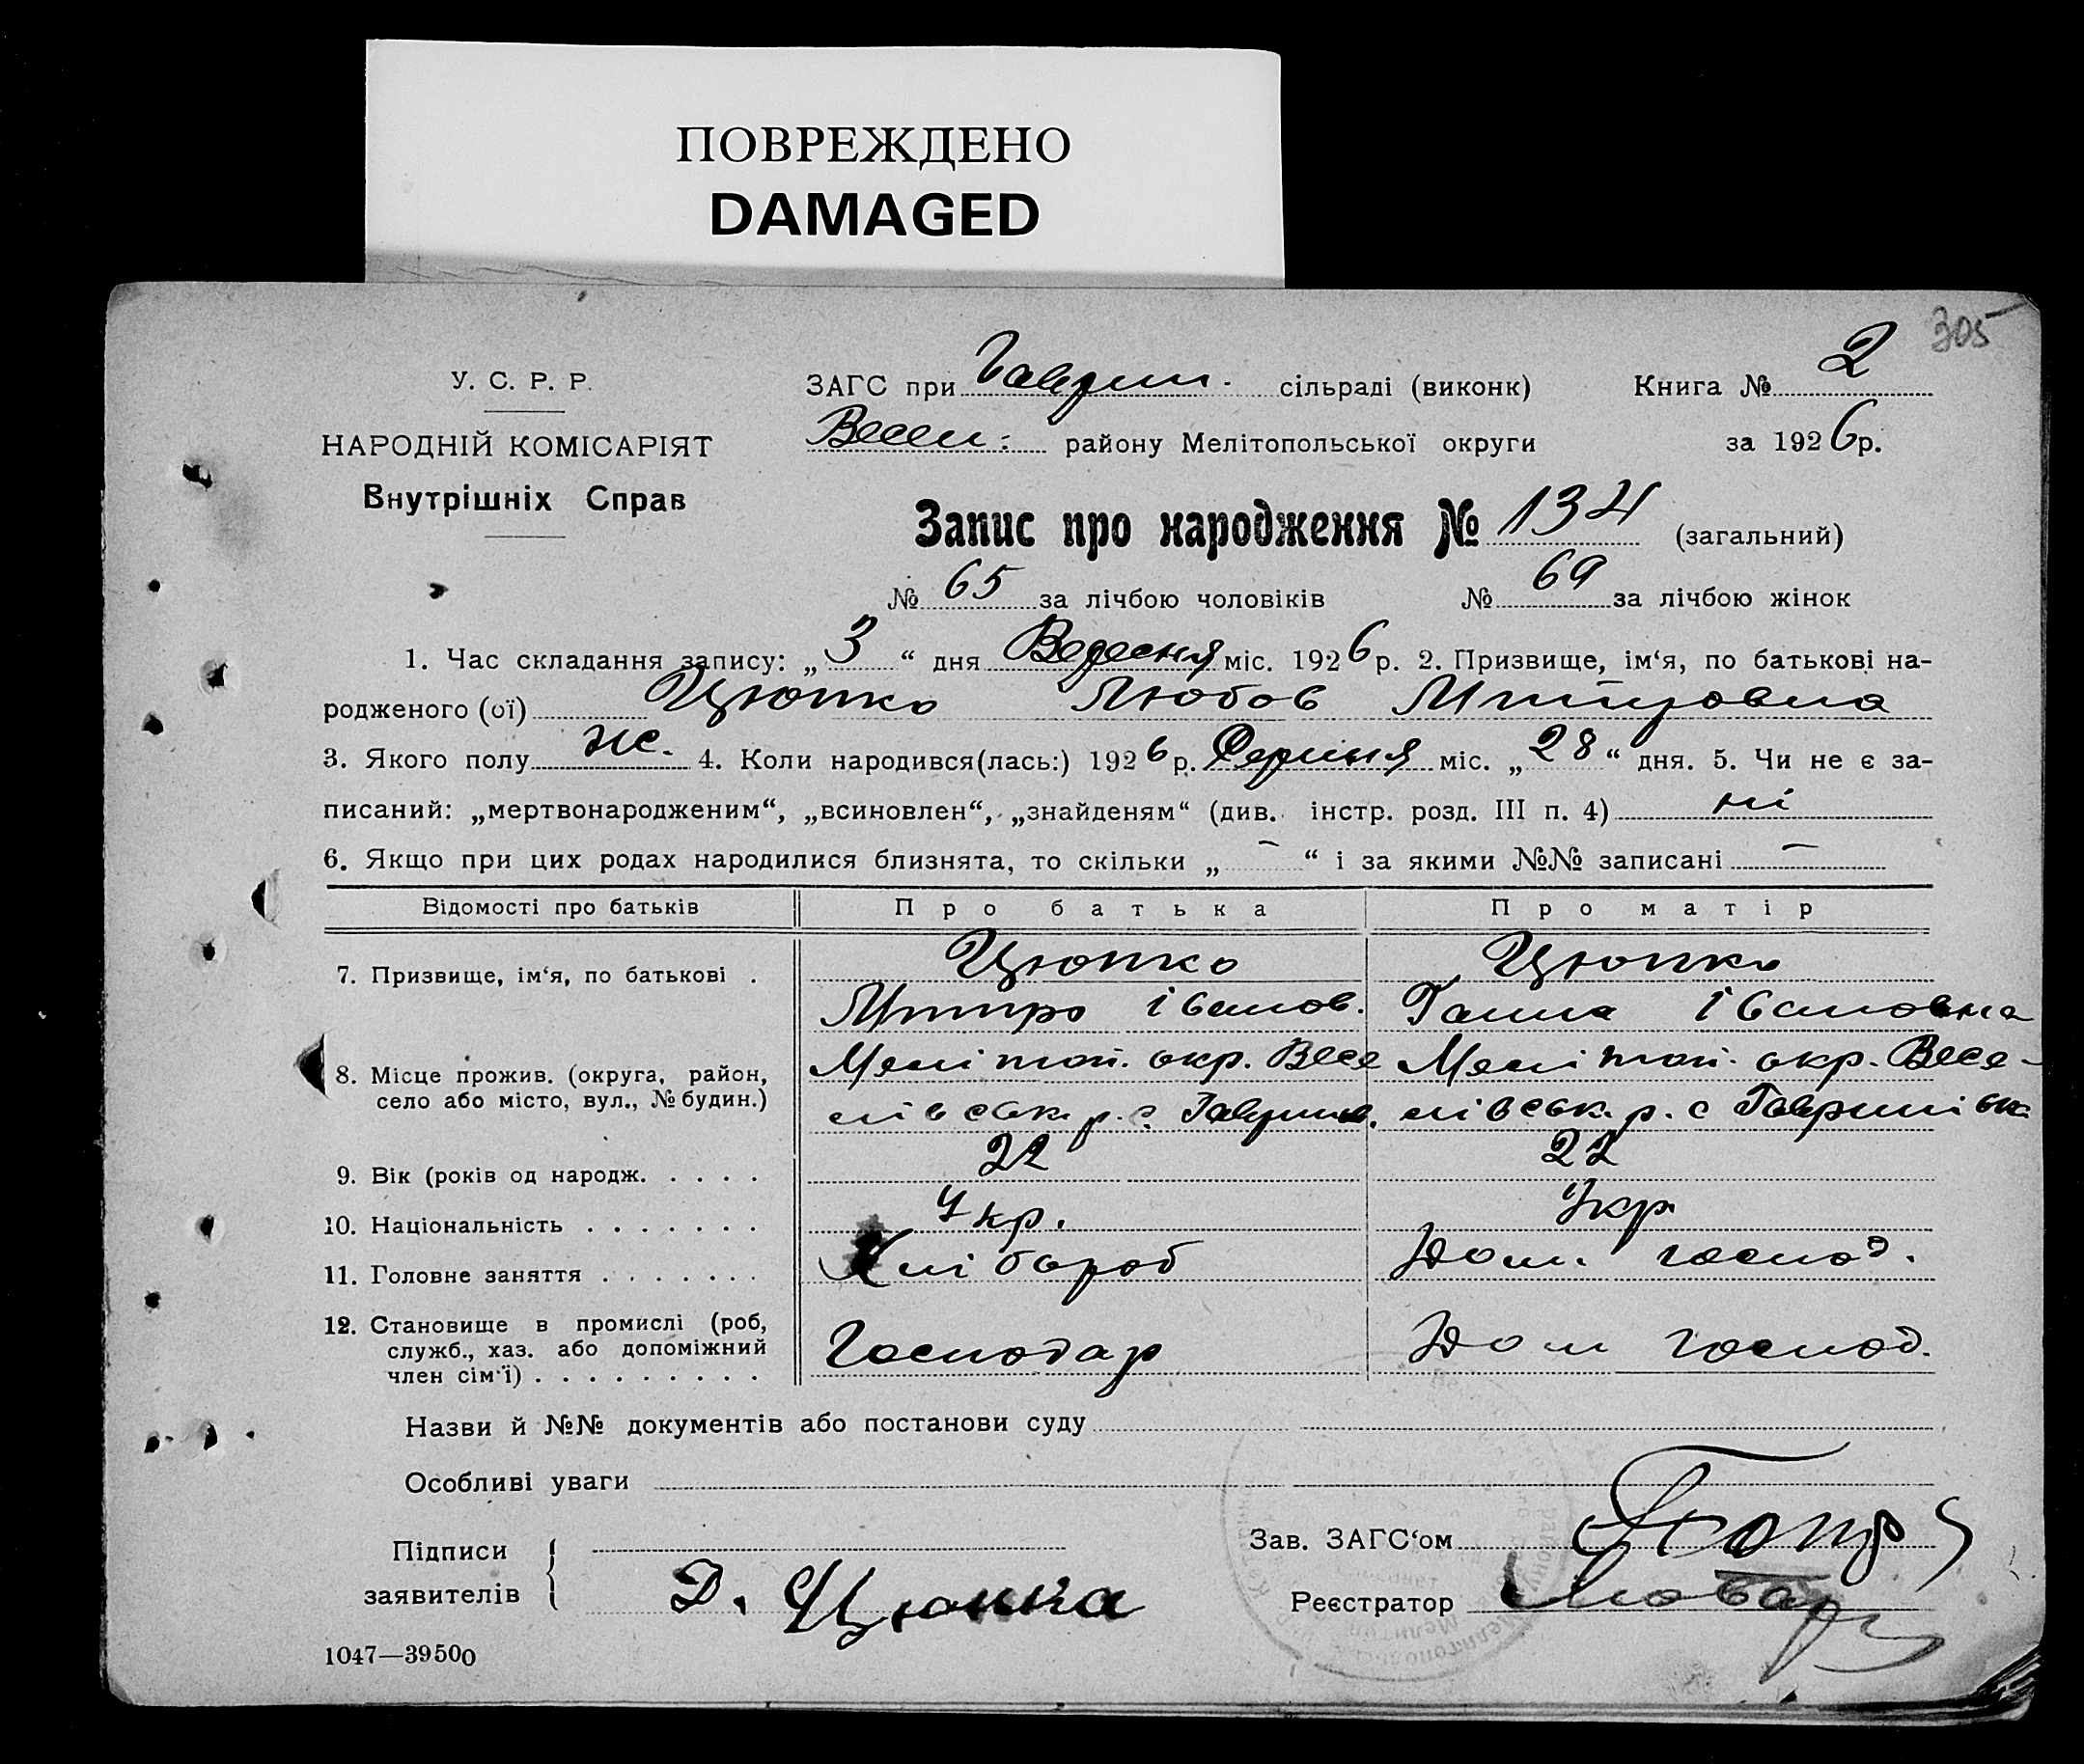 ПОВРЕЖДЕНО
DAMAGED
305
У. С. Р. Р.
НАРОДНІЙ КОМІСАРІЯТ
Внутрішніх Справ
ЗАГС при Гаврил. сільраді (виконк) Книга № 2
Весел: району Мелітопольської округи за 1926р.
Запис про народження № 134 (загальний)
№ 65 за лічбою чоловіків № 69 за лічбою жінок
1. Час складання запису: „3“ дня Вересня міс. 1926р. 2. Призвище, ім‘я, по батькові на-
родженого (ої) Цюпко Любов Митровна
3. Якого полу Жс. 4. Коли народився(лась:) 1926р. Серпня міс. „28“ дня. 5. Чи не є за-
писаний: „мертвонародженим“, „всиновлен“, „знайденям“ (див. інстр. розд. III п. 4) ні
6. Якщо при цих родах народилися близнята, то скільки „ - “ і за якими №№ записані -
Відомості про батьків Про батька Про матір
7. Призвище, ім‘я, по батькові . Цюпко Цюпко
Митро Іванов. Ганна Івановна
8. Місце прожив. (округа, район, Меліттоп. окр. Весе Меліттоп. окр. Весе-
село або місто, вул., № будин.) лівськ. р. с. Гаврилів. лівськ. р. с Гаврилівка
9. Вік (років од народж. . . . . 22 22
10. Національність . . . . . . . Укр. Укр.
11. Головне заняття . . . . . . . Хлібороб Дом. господ.
12. Становище в промислі (роб,
служб., хаз. або допоміжний Господар Дом господ.
член сім‘ї) . . . . . . . . .
Назви й №№ документів або постанови суду
Особливі уваги
Підписи Зав. ЗАГС‘ом
заявителів Д. Цюпка Реєстратор
1047—39500